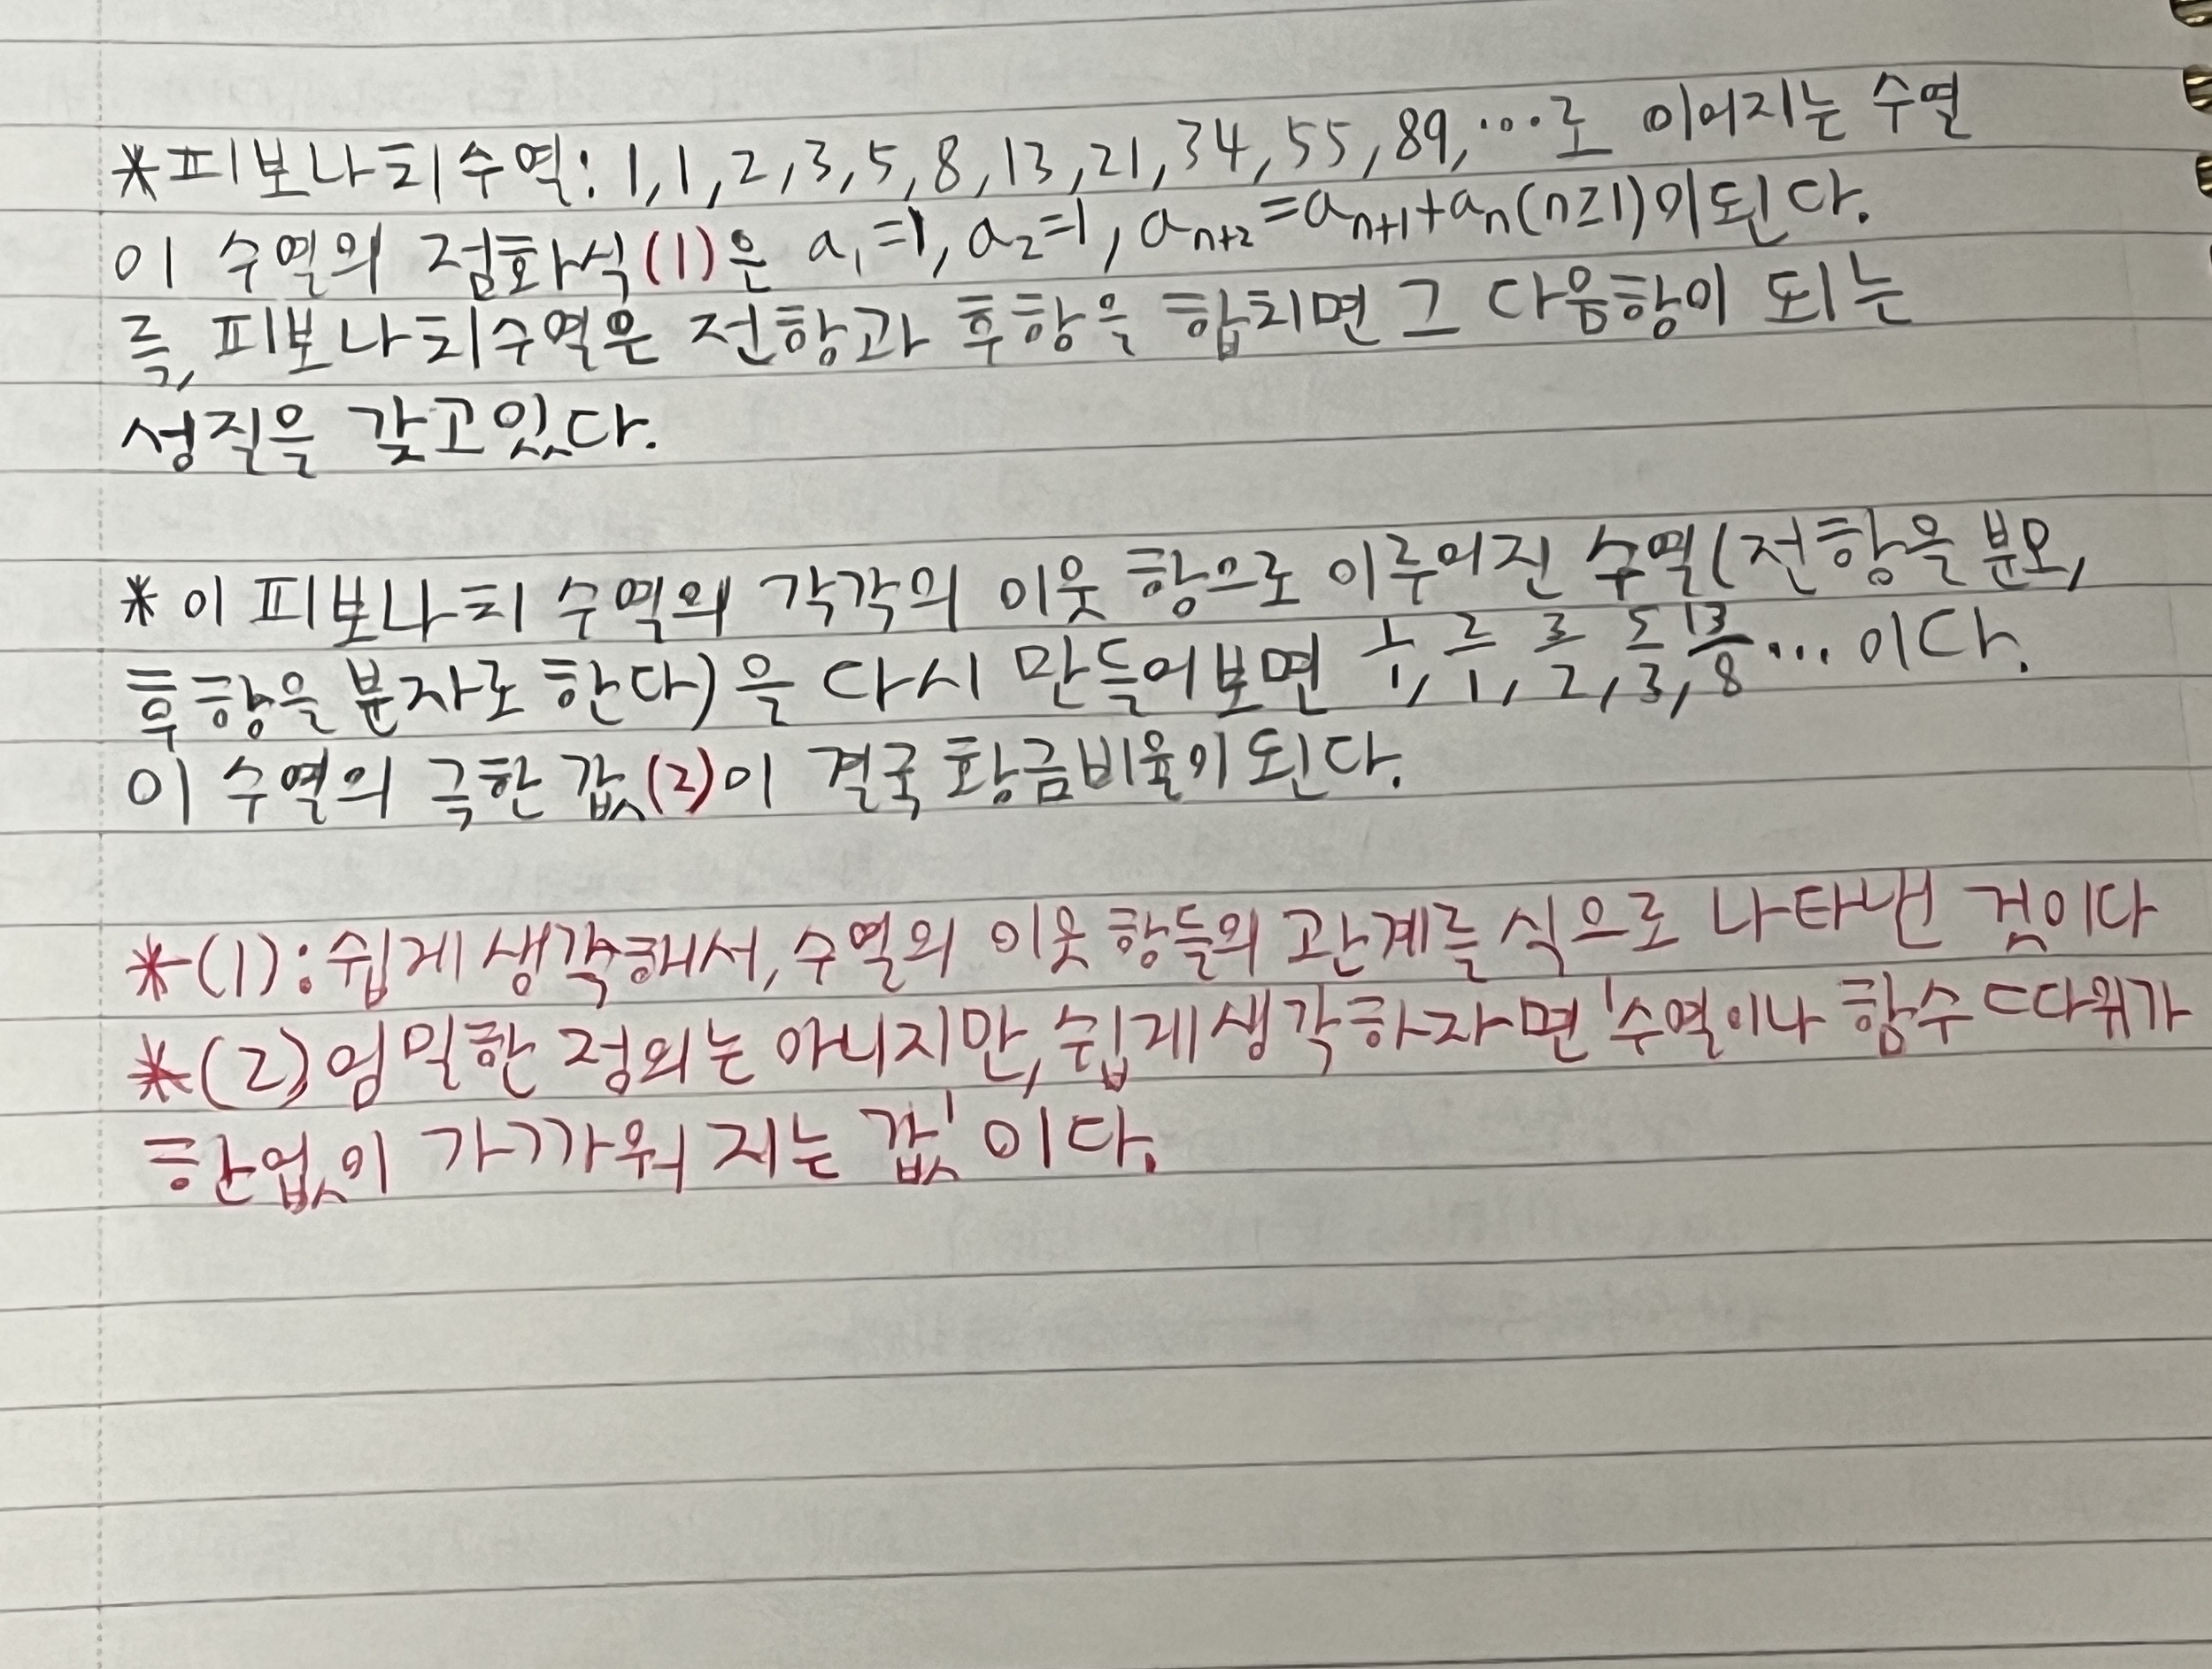 *피보나치수열: 1, 1, 2, 3, 5, 8, 13, 21, 34, 55, 89, …로 이어지는 수열
이 수열의 점화식(1)은 a₁=1, a₂=1, aₙ₊₂=aₙ₊₁+aₙ(n≥1)이된다.
즉, 피보나치수열은 전항과 후항을 합치면 그 다음항이 되는
성질을 갖고있다.
* 이 피보나치 수열의 각각의 이웃 항으로 이루어진 수열(전항을 분모,
후항을 분자로 한다)을 다시 만들어보면 1/1, 2/1, 3/2, 5/3, 13/8 … 이다.
이 수열의 극한 값(2)이 결국 황금비율이 된다.
*(1): 쉽게 생각해서, 수열의 이웃 항들의 관계를 식으로 나타낸 것이다
*(2) 엄밀한 정의는 아니지만, 쉽게 생각하자면 '수열이나 함수 따위가
한없이 가까워 지는 값' 이다.